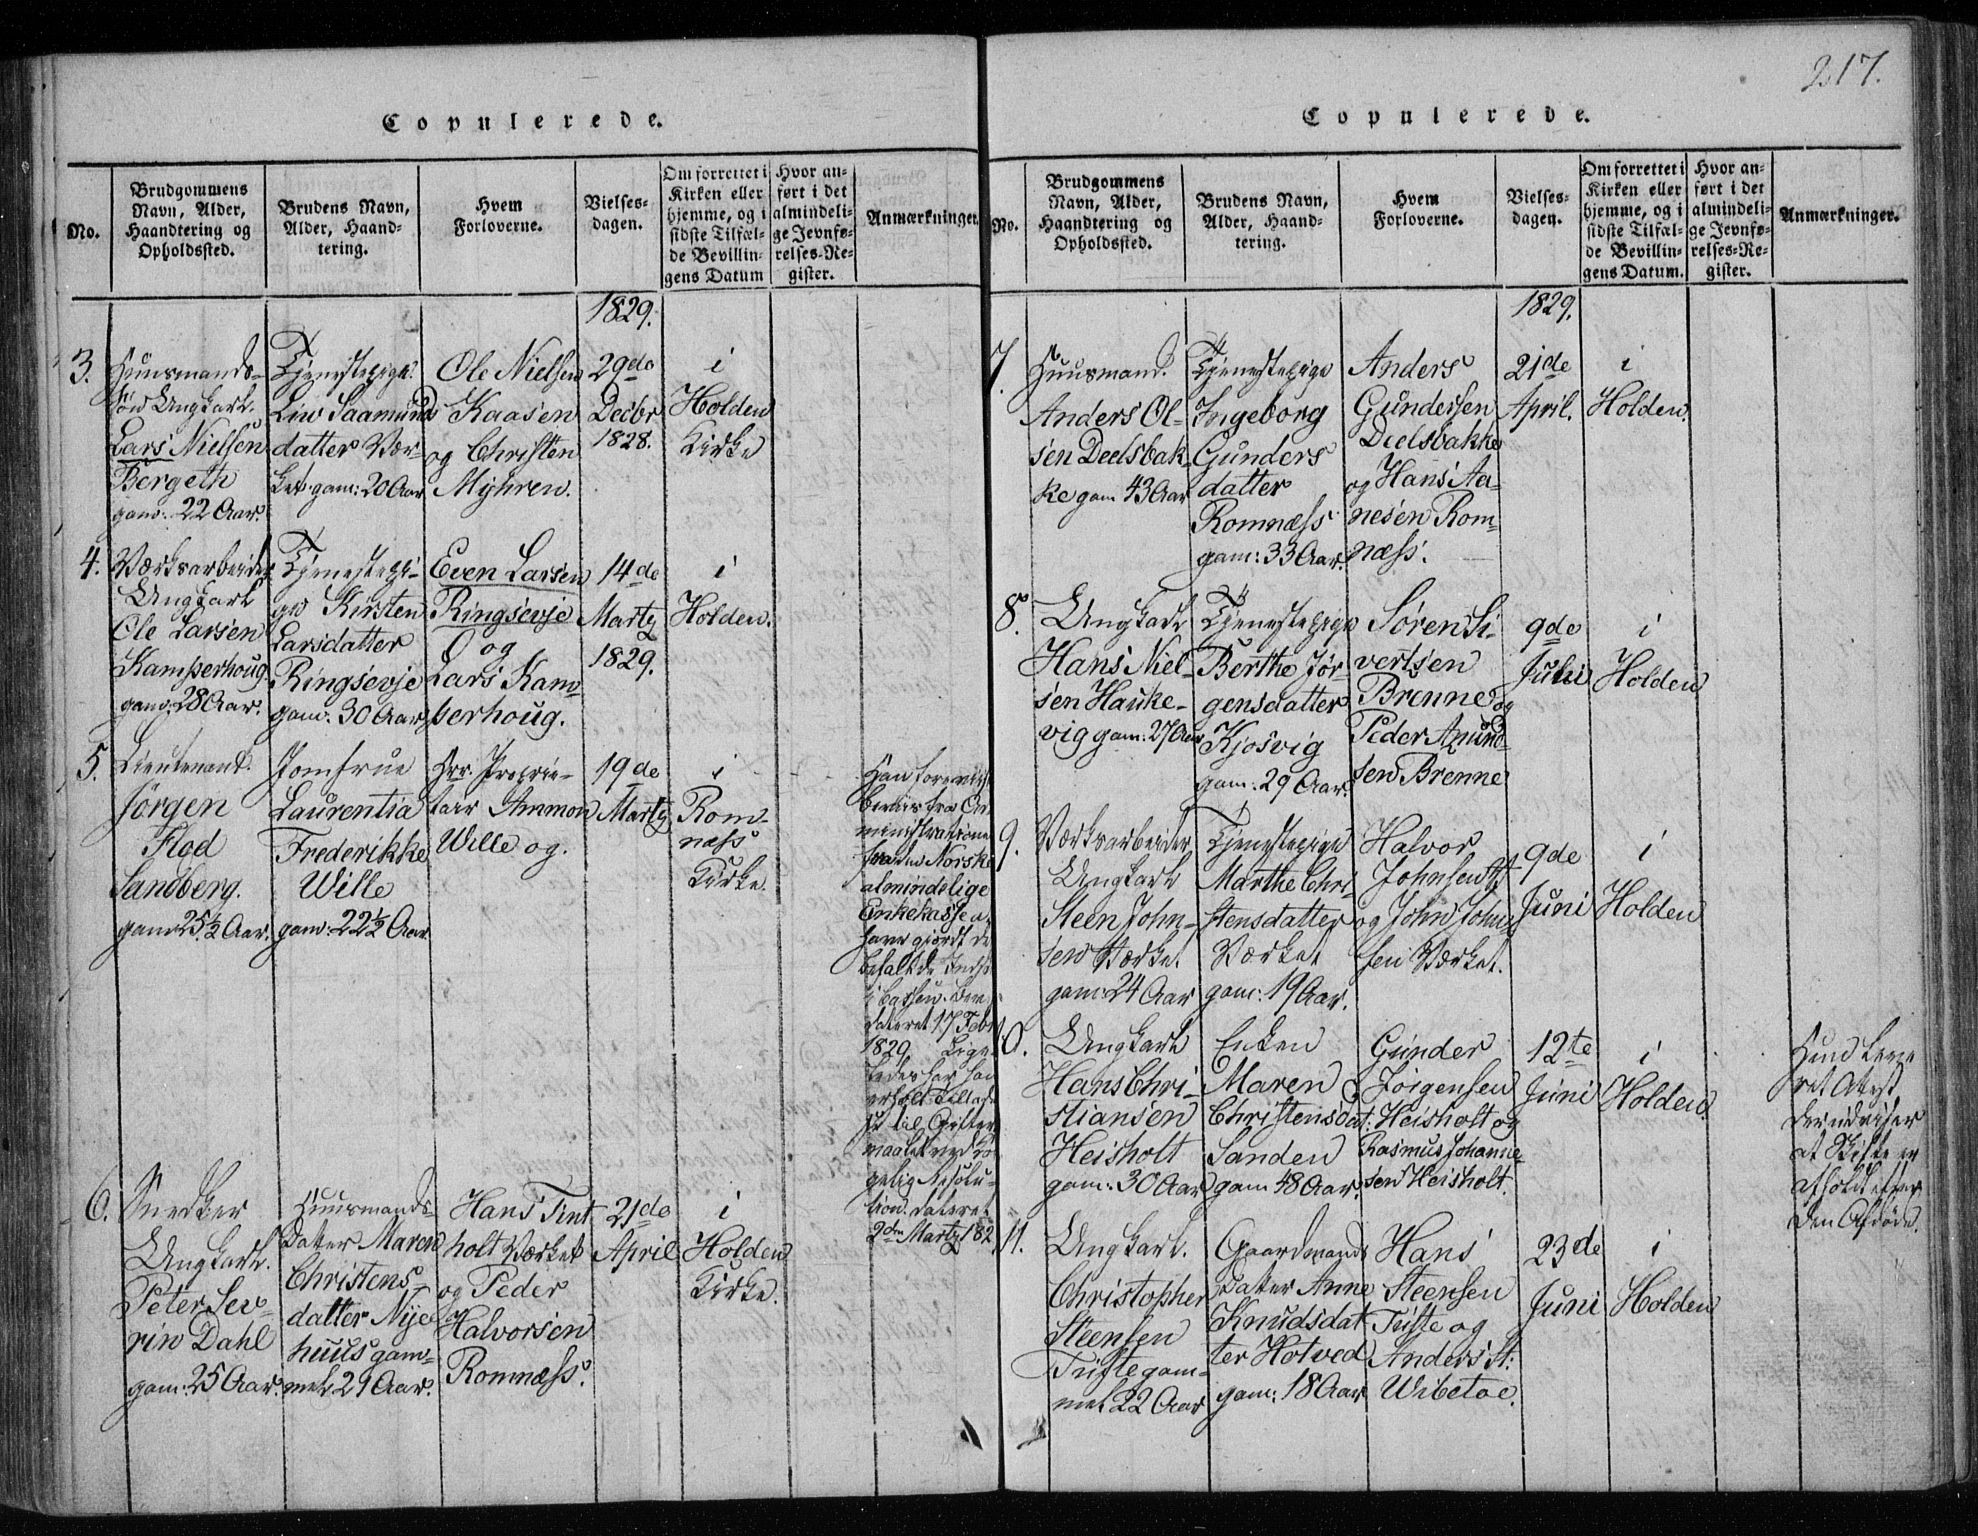 217.
Copulerede.
No.
Brudgommens
Navn, Alder,
Haandtering og
Opholdssted.
Brudens Navn,
Alder, Haand-
tering.
Hvem
Forloverne.
Vielses-
dagen.
Om forrettet i
Kirken eller
hjemme, og i
sidste Tilfæl-
de Bevillin-
gens Datum
Hvor an-
ført i det
almindeli-
ge Jevnfø-
relses-Re-
gister.
Anmærkninger.
1829.
3.
Huusmands-
søn Ungkarl.
Lars Nielsen
Bergeth
gam: 22 Aar.
Tjenestepige.
Liv Saamunds
datter Vær-
ket gam: 20 Aar
Ole Nielsen
Kaasen
og Christen
Myhren.
29de
Decbr
1828.
i
Holden
Kirke
4.
Værksarbeider
Ungkarl
Ole Larsen
Kamperhoug
gam: 28 Aar.
Tjenestepi-
ge Kirsten
Larsdatter
Ringsevje
gam: 30 Aar
Even Larsen
Ringsevje
og
Lars Kam-
perhoug.
14de
Marty
1829.
i
Holden.
5.
Lieutenant.
Jørgen
Flod
Sandberg.
gam 25½ Aar.
Jomfrue
Laurentia
Frederikke
Wille
gam: 22½ Aar
Hrr. Proprie-
tair Ammon
Wille og.
19de
Marty
i
Rom-
næss
Kirke.
Han foreviist
beviis fra Ad
ministratione
for den Norske
almindelige
Enkekasse a
have giordt de
befalede Inds
i Cassen. Bev
dateret 17 Feb
1829 Lige
ledes har han
erholdt Tillad
se til Gifter
maalet ved Ko
gelig Resolu-
tion dateret
2den Marty 182
6.
Snedker
Ungkarl.
Peter Sev-
rin Dahl
gam: 25 Aar.
Huusmands-
datter Maren
Christens-
datter Nye
huus gam-
mel 29 Aar.
Hans Tint
holt Værket
og Peder
Halvorsen
Romnæss.
21de
April
i
Holden
Kirke.
Copulerede.
No.
Brudgommens
Navn, Alder,
Haandtering og
Opholdssted.
Brudens Navn,
Alder, Haand-
tering.
Hvem
Forloverne.
Vielses-
dagen.
Om forrettet i
Kirken eller
hjemme, og i
sidste Tilfæl-
de Bevillin-
gens Datum.
Hvor an-
ført i det
almindeli-
ge Jevnfø-
relses-Re-
gister.
Anmærkninger.
1829.
7.
Huusmand.
Anders Ol-
sen Deelsbak-
ke gam 43 Aar
Tjenestepige
Ingeborg
Gunders
datter
Romnæss
gam: 33 Aar.
Anders
Gundersen
Deelsbakke
og Hans Aa-
nesen Rom-
næss.
21de
April.
i
Holden.
8.
Ungkarl
Hans Niel-
sen Hauke-
vig gam: 27 Aar
Tjenestepige
Berthe Jør-
gensdatter
Kjosvig
gam: 29 Aar.
Søren Si-
vertsen
Brenne og
Peder Amund-
sen Brenne
9de
Juni
i
Holden
9.
Værksarbeider
Ungkarl
Steen John-
sen Værket.
gam: 24 Aar
Tjenestepige
Marthe Chri-
stensdatter
Værket
gam: 19 Aar.
Halvor
Johnsen
og John John
sen Værket.
9de
Juni
i
Holden
10.
Ungkarl
Hans Chri-
stiansen
Heisholt
gam: 30 Aar
Enken
Maren
Christensdat:
Sanden
gam 48 Aar.
Gunder
Jørgensen
Heisholt og
Rasmus Johanne-
sen Heisholt.
12te
Juni
i
Holden.
Hun leve-
ret Atest
der udviser
at Skifte er
afholdt efter
den Afdøde.
11.
Ungkarl.
Christopher
Steensen
Tufte gam-
mel 22 Aar
Gaardmands
Datter Anne
Knudsdat
ter Hotved
gam: 18 Aar
Hans
Steensen
Tufte og
Anders St:
Wibetoe.
23de
Juni
i
Holden